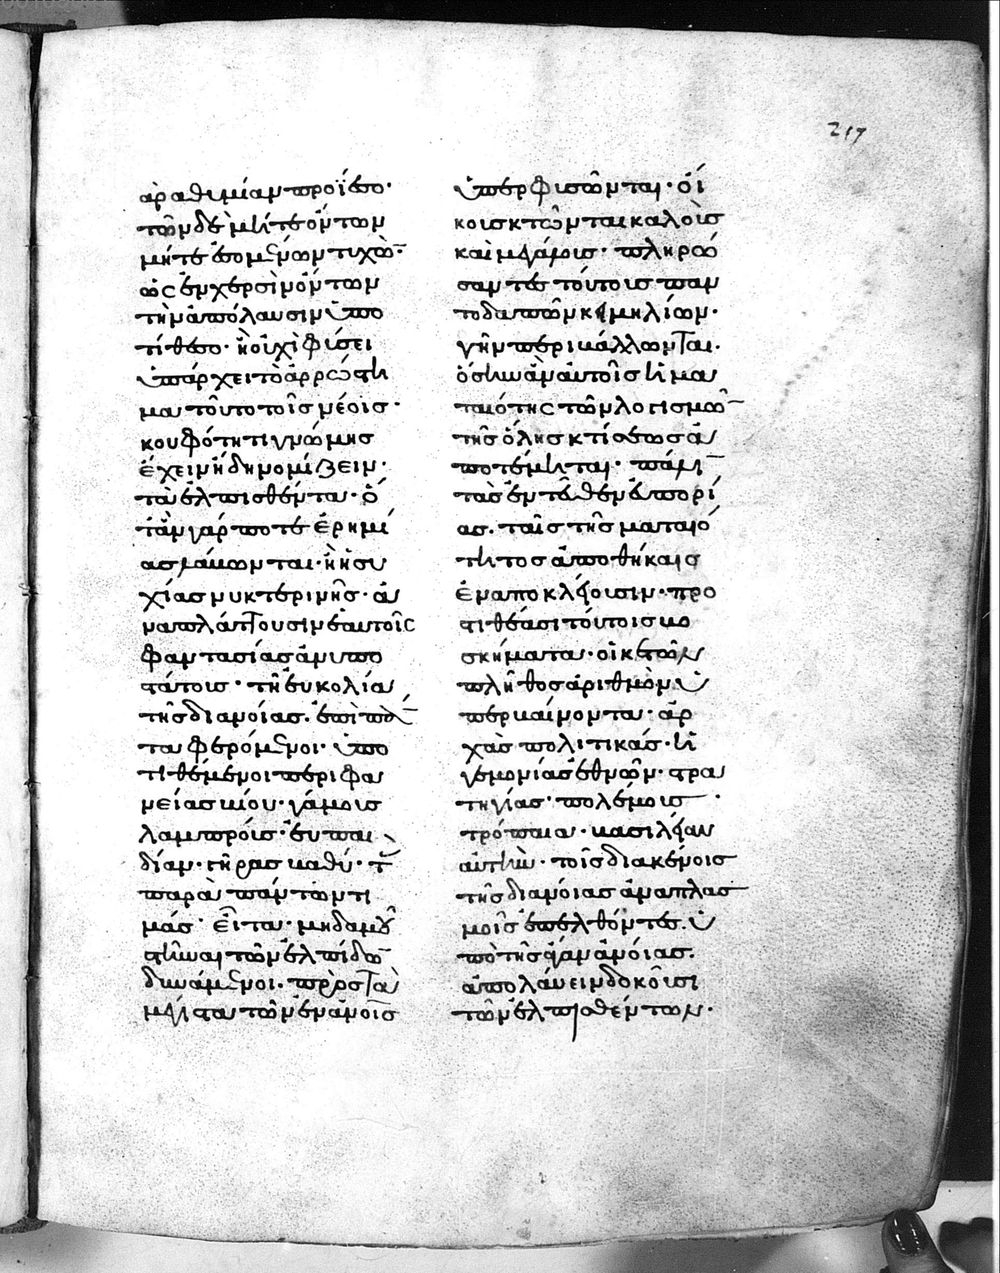 ἀρ αθυμίαν προΐεσο·
τῶν δὲ μήτε ὄντων
μήτε ἐσομένων τυχὸ̅·
ὡς ἐν χερσὶν ὄντων
τὴν ἀπόλαυσιν ὑπο
τίθεσο· ἢ οὐχὶ φύσει
ὑπάρχει τὸ ἀρρώστη
μα τοῦτο τοῖς νέοις·
κουφότητι γνώμης
ἔχειν ἤδη νομίζειν·
τὰ ἐλπισθέντα· ὅ
τὰν γάρ ποτε ἐρημί
ας λάβωνται· ἢ ἡσυ
χίας νυκτερινῆς· ἀ
ναπλάττουσιν ἑαυτοῖς
φαντασίας ἀνυπο
στάτοις· τῇ εὐκολία
τῆς διανοίας· ἐπὶ πά̅
τα φερόμενοι· ὑπο
τιθέμενοι περιφα
νείας βίου· γάμοις
λαμπρούς· εὐπαι
δίαν· γῆρας βαθύ· τὰς
παρὰ πάντων τι
μάς· εἶτα· μηδαμοῦ
στῆναι τῶν ἐλπίδω̅
δυνάμενοι· πρὸς τὰ
μέγιστα τῶν ἐν ἀνοῖς
ὑπερφυσῶνται· οἴ
κους κτῶνται καλοὺς
καὶ μεγάλους· πληρώ
σαντες τούτους παν
τοδαπῶν κειμηλίων·
γῆν περιβάλλονται·
ὅσην ἂν αὐτοῖς ἡ μα
ταιότης τῶν λογισμῶ̅
τῆς ὅλης κτίσεως ἀ
ποτέμηται· πάλι̅
τὰς ἐντεῦθεν εὐπορί
ας· ταῖς τῆς ματαιό
τητος ἀποθήκαις
ἐναποκλείουσιν· προ
στιθέασι τούτοις βο
σκήματα· οἰκετῶν
πλῆθος ἀριθμὸν ὑ
περβαίνοντα· ἀρ
χὰς πολιτικάς· ἡ
γεμονίας ἐθνῶν· στρα
τηγίας· πολέμους·
τρόπαια· βασιλείαν
αὐτήν· τοῖς διακένοις
τῆς διανοίας ἀναπλασ
μοῖς ἐπελθόντες· ὑ
πὸ τῆς ἄγαν ἀνοίας·
ἀπολαύειν δοκοῦσι
τῶν ἐλπισθέντων·
217